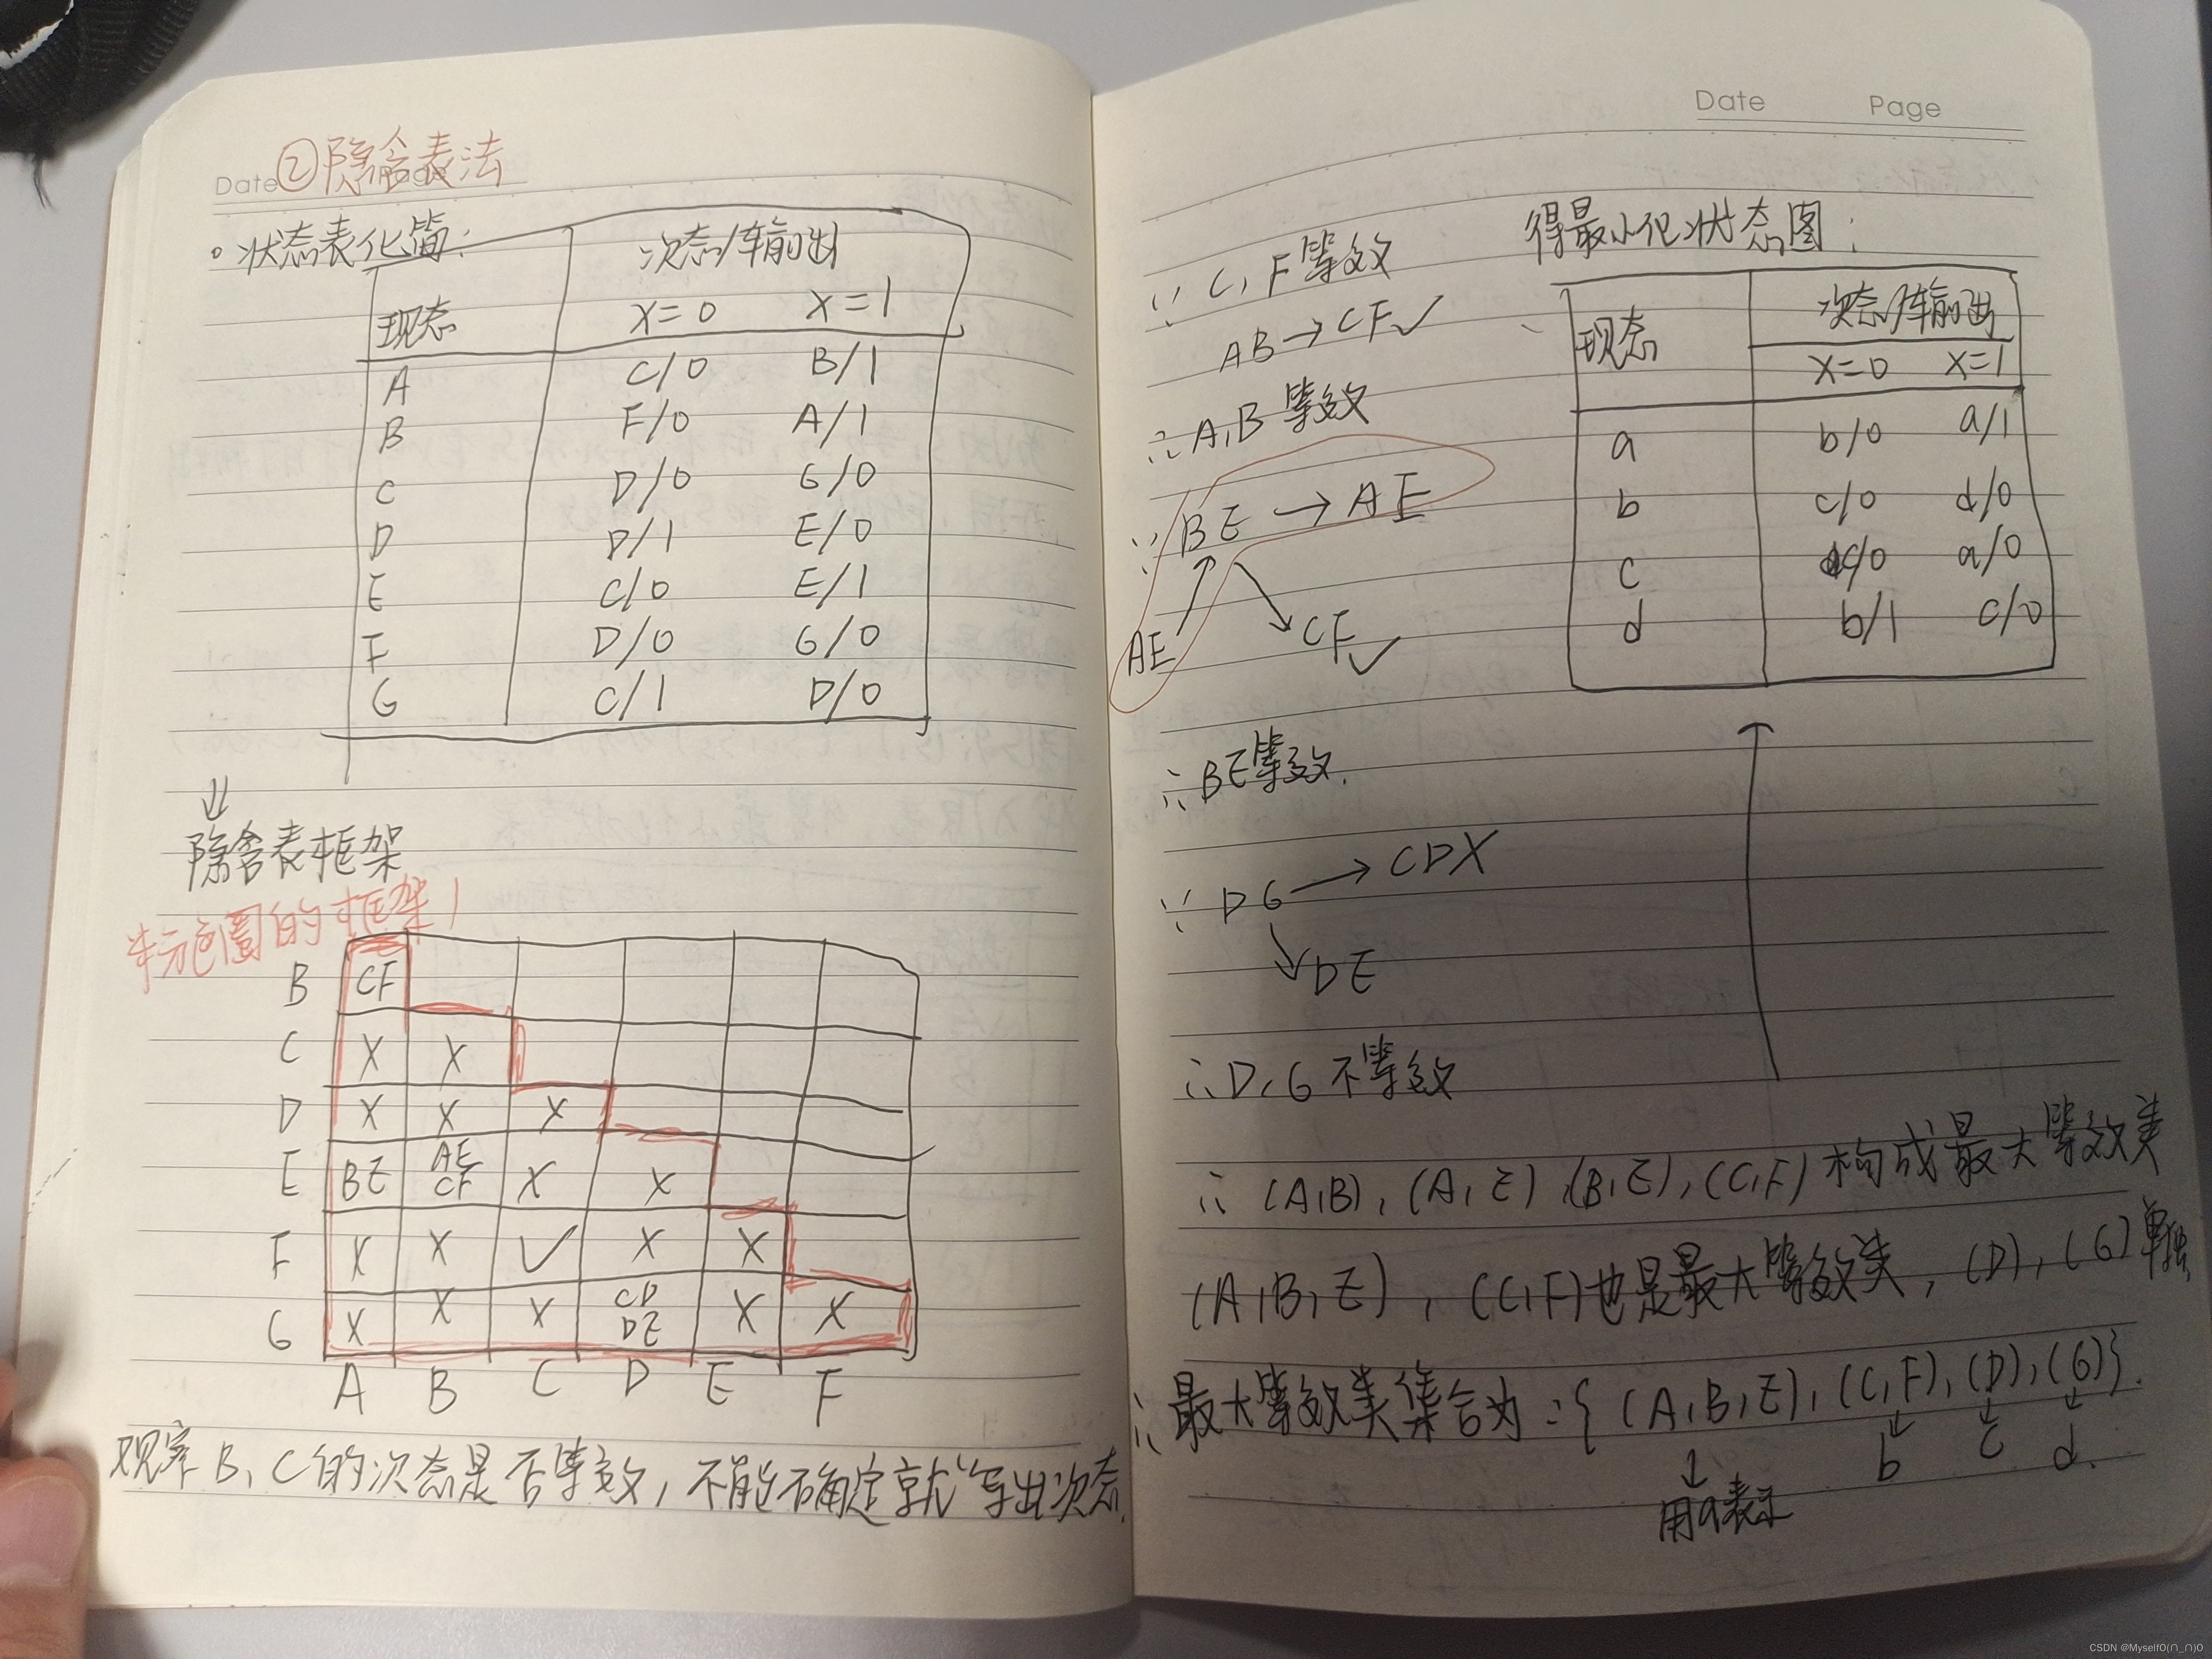 Date
②隐含表法
。状态表化简:
次态/输出
现态 X=0 X=1
A C/0 B/1
B F/0 A/1
C D/0 G/0
D D/1 E/0
E C/0 E/1
F D/0 G/0
G C/1 D/0
⇓
隐含表框架
圈的框架!
B CF
C X X
D X X X
E BE AE CF X X
F X X ✓ X X
G X X X CD DE X X
A B C D E F
观察B,C的次态是否等效,不能否确定就写出次态.
Date Page
∵C,F等效
AB→CF✓
∴A,B等效
∵BE→AE
AE
CF✓
∴BE等效.
∵DG→CDX
DE
∴D,G不等效
得最小化状态图:
次态/输出
现态 X=0 X=1
a b/0 a/1
b c/0 d/0
c c/0 a/0
d b/1 c/0
∴(A,B),(A,E),(B,E),(C,F)构成最大等效类
(A,B,E),(C,F)也是最大等效类,(D),(G)单独
∴最大等效类集合为:{(A,B,E),(C,F),(D),(G)}.
↓ ↓ ↓ ↓
用a表示 b c d.
CSDN @MyselfO(∩_∩)O